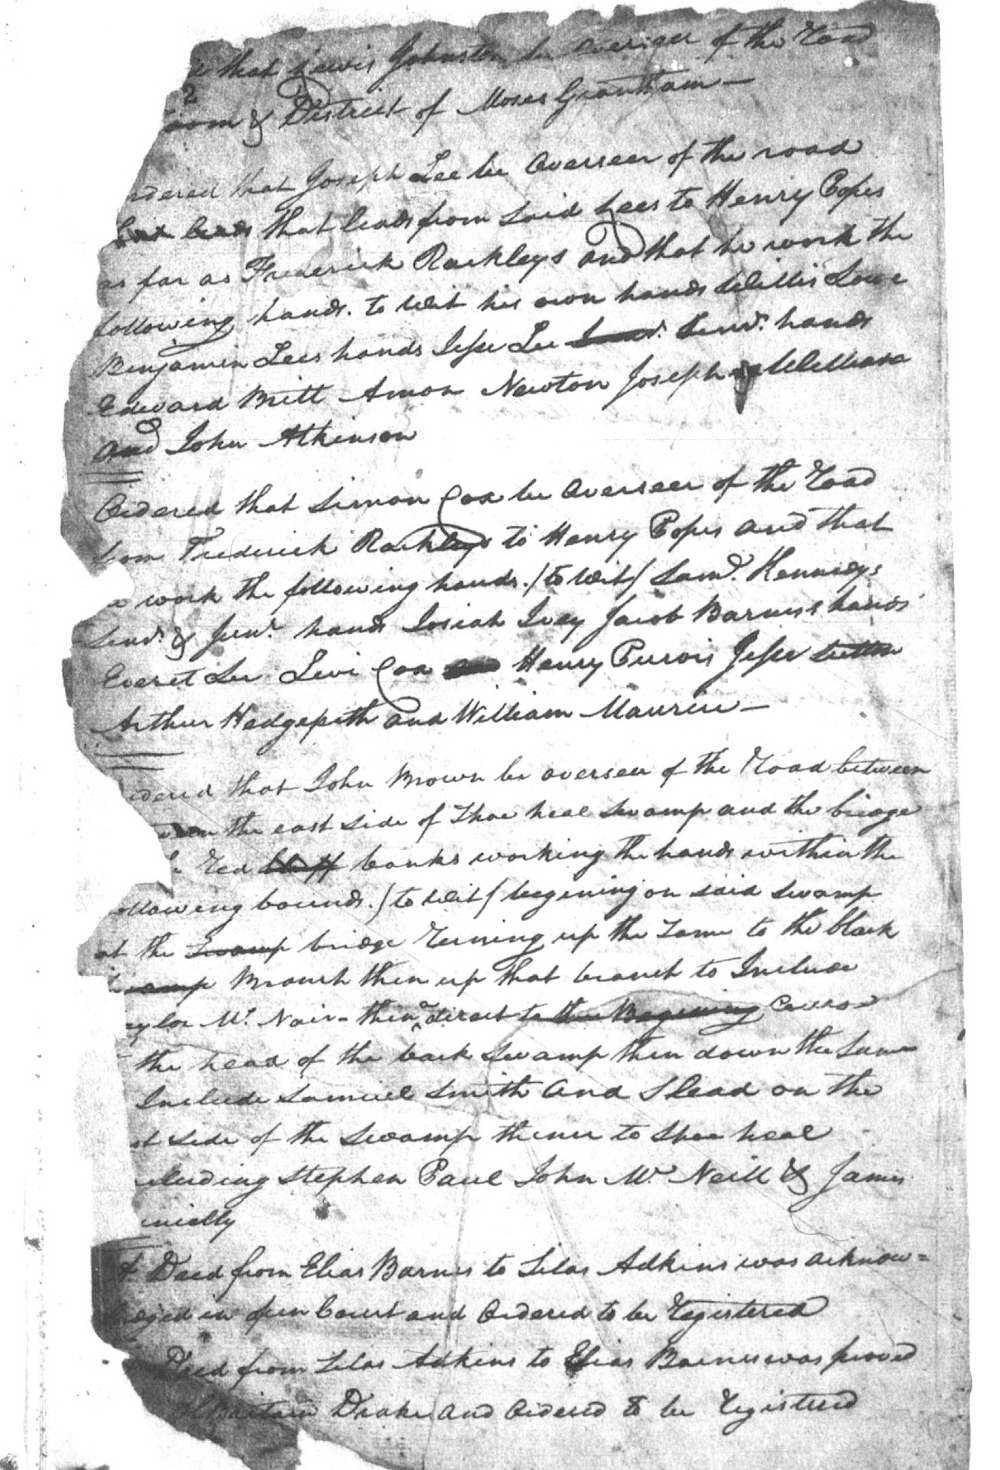 that Lewis Johnston be overseer of the road
2
room & District of Moses Grantham —
rdered that Joseph Lee be Overseer of the road
that leads from said Lees to Henry Popes
as far as Frederick Rackleys and that he work the
following hands. to wit his own hands Willis Lowe
Benjamin Lees hands Jesse Lee Senr. hands
Edward Britt Amos Newton Joseph Williams
and John Atkinson
Ordered that Simon Cox be Overseer of the Road
from Frederick Rackleys to Henry Popes and that
work the following hands. (to wit) Saml. Kennedys
Senr. & Junr. hands Josiah Ivey Jacob Barness hands
Everet Lee Levi Cox Henry Purvis Jesse
Arthur Hedgepeth and William Maurice —
dered that John Brown be overseer of the Road between
on the east side of Shoe heal swamp and the bridge
Red bluff banks working the hands within the
ollowing bounds. (to wit) begening on said swamp
at the Swamp bridge runing up the same to the black
swamp Branch then up that branch to Include
Mc Nair - then direct to the Begining
the head of the back swamp then down the same
Include Samuel Smith and Slead on the
st side of the swamp thence to Shoe heal
cluding Stephen Paul John Mc Neill & James
A Deed from Elias Barnes to Silas Adkins was acknow=
edged in open Court and Ordered to be Registered
Deed from Silas Adkins to Elias Barnes was proved
Britain Drake and Ordered to be Registered